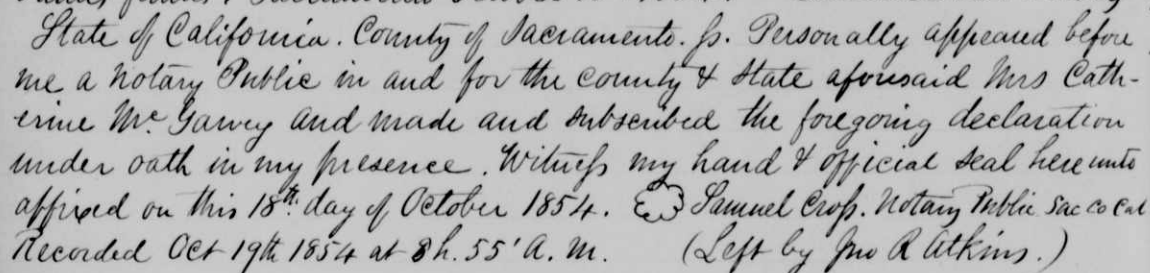 State of California. County of Sacramento. ss. Personally appeared before
me a Notary Public in and for the county & State aforesaid Mrs Cath-
erine Mc. Garvey and made and subscribed the foregoing declaration
under oath in my presence. Witness my hand & official seal hereunto
affixed on this 18th. day of October 1854. Samuel Cross. Notary Public Sac Co Cal
Recorded Oct 19th 1854 at 8 h. 55' A. M. (Left by Jno R Atkins.)